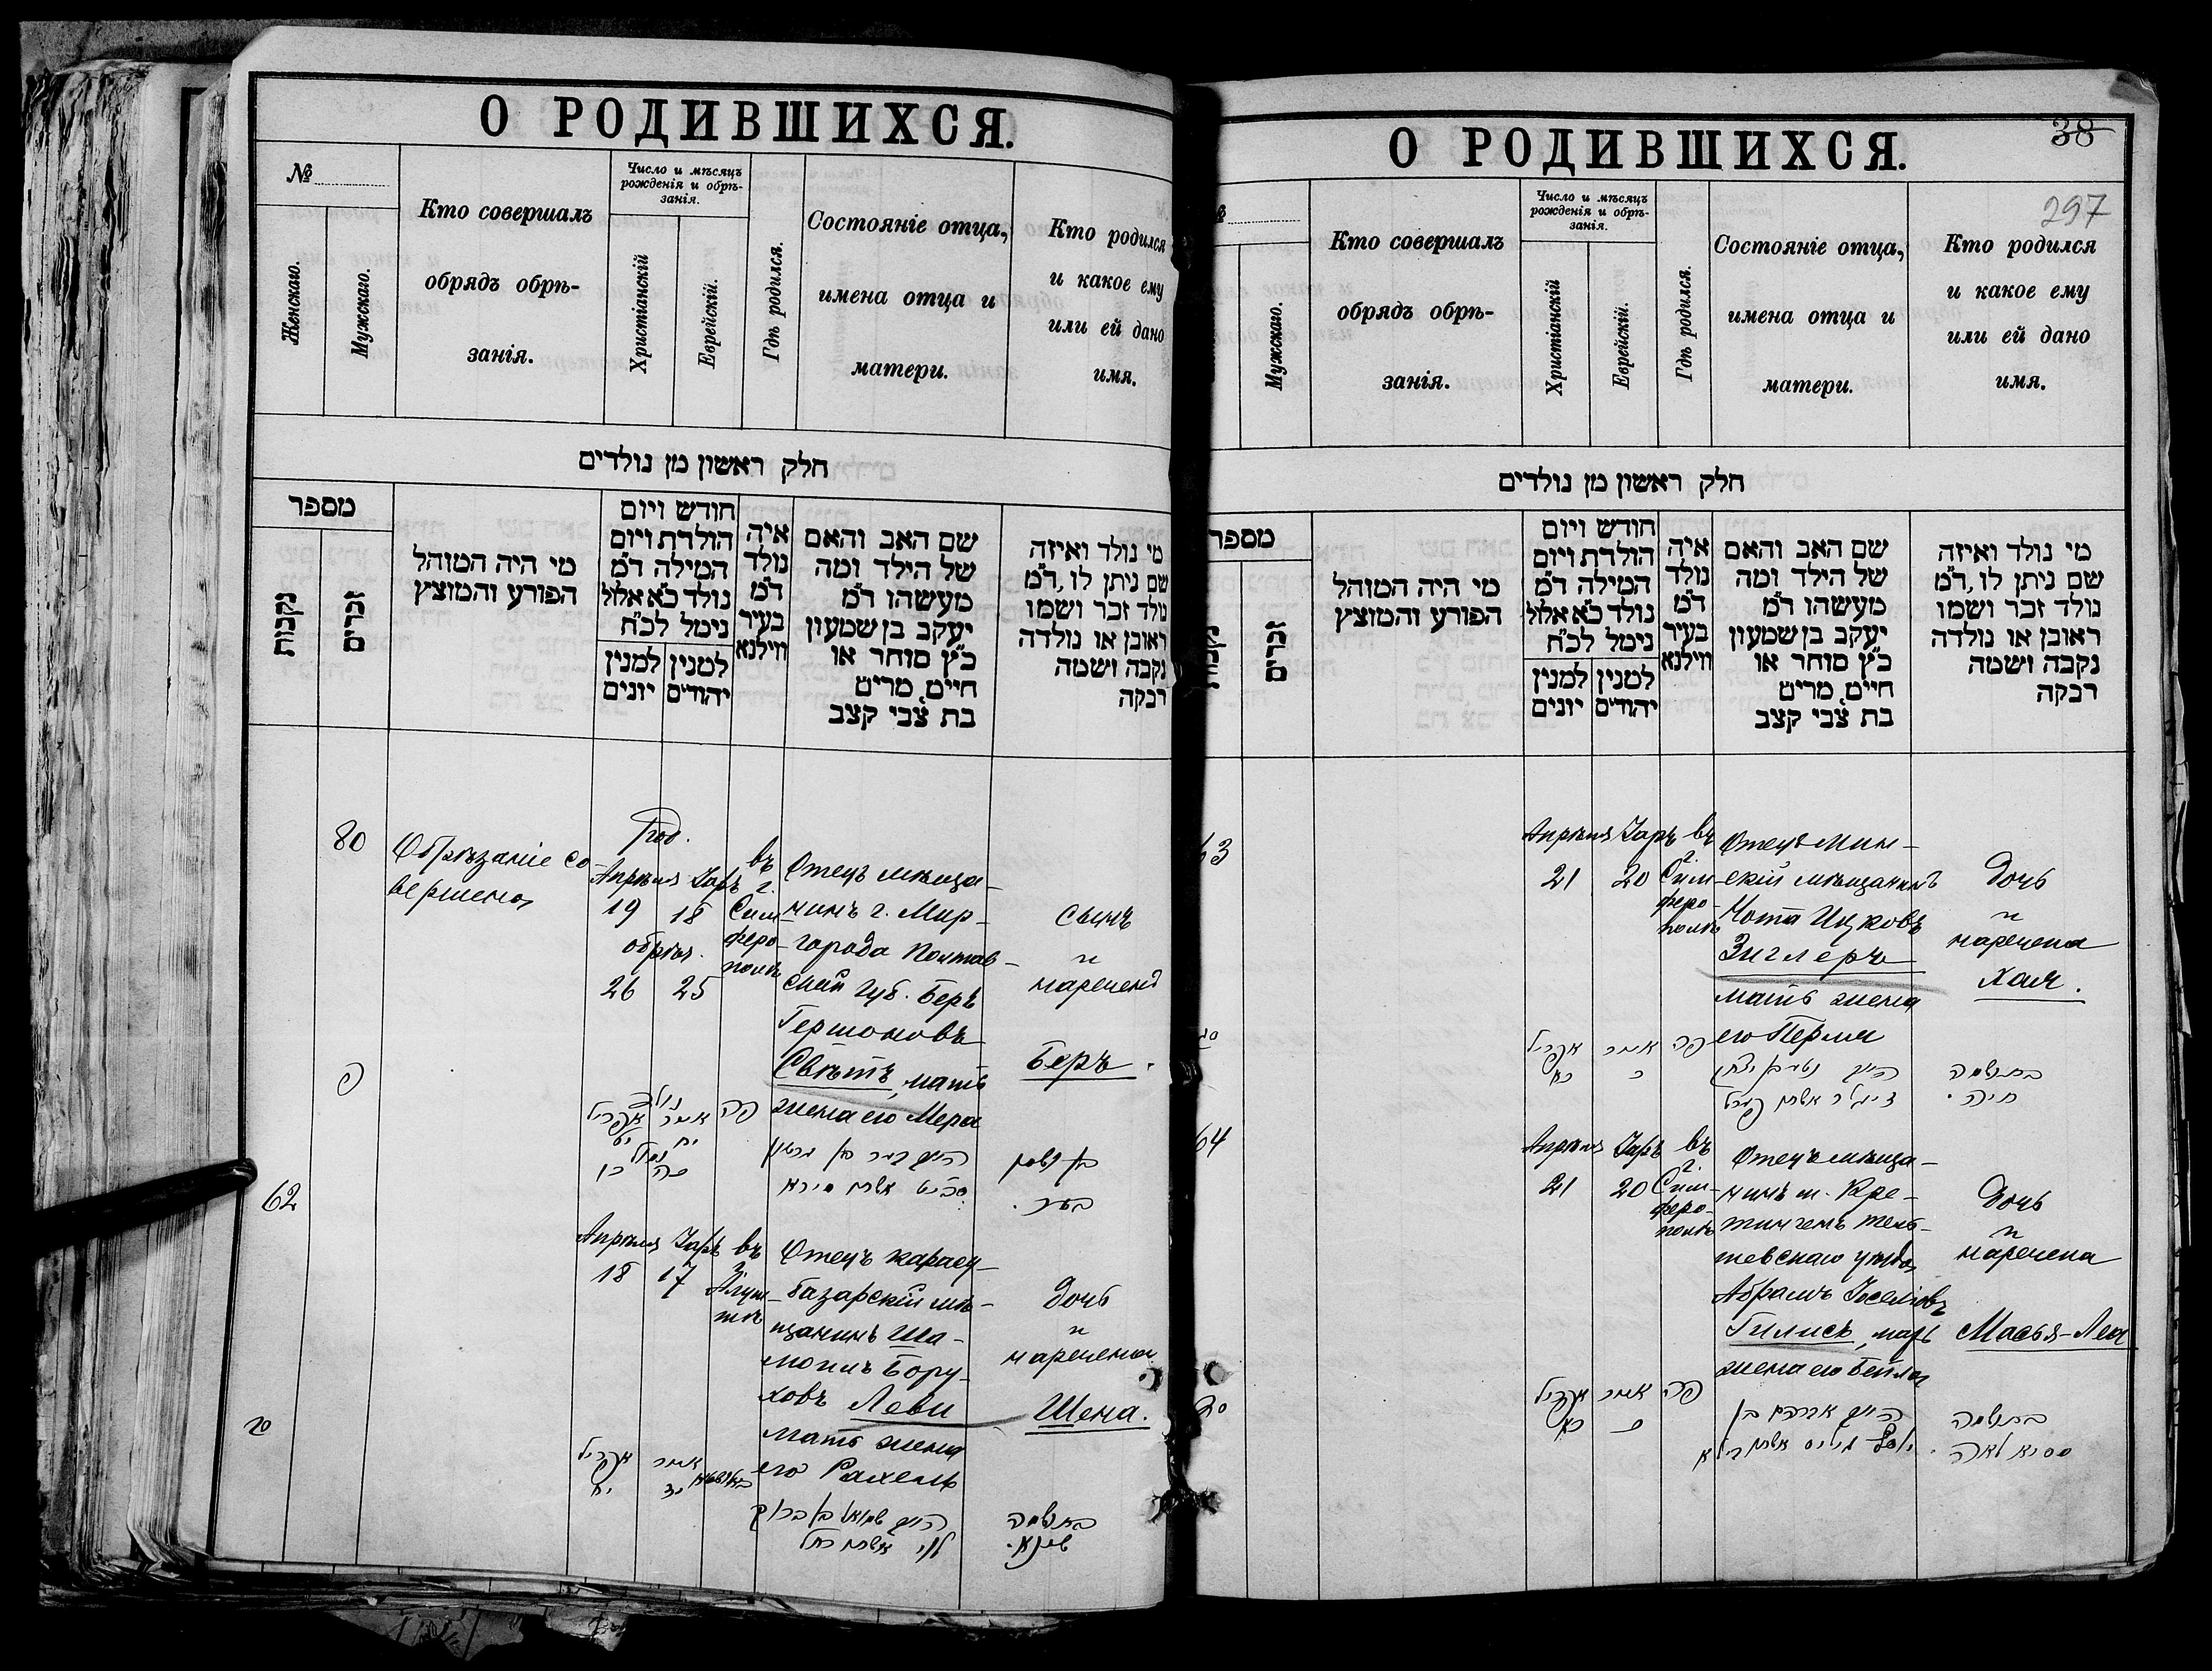 О РОДИВШИХСЯ.
№
Женскаго.
Мужскаго.
Кто совершалъ
обрядъ обрѣ-
занія.
Число и мѣсяцъ
рожденія и обрѣ-
занія.
Христіанскій
Еврейскій.
Гдѣ родился.
Состояніе отца,
имена отца и
матери.
Кто родился
и какое ему
или ей дано
имя.
חלק ראשון מן נולדים
מספר
נקבות
זכרים
מי היה המוהל
הפורע והמוצץ
חודש ויום
הולדת ויום
המילה ד״מ
נולד כ״א אלול
נימל לכ״ח
למנין
יונים
למנין
יהודים
איה
נולד
ד״מ
בעיר
ווילנא
שם האב והאם
של הילד ומה
מעשהו ד״מ
יעקב בן שמעון
כ״ץ סוחר או
חיים, מרים
בת צבי קצב
מי נולד ואיזה
שם ניתן לו, ד״מ
נולד זכר ושמו
ראובן או נולדה
נקבה ושמה
רבקה
80
Обрѣзаніе со-
вершено
Род.
Апрѣля Іаръ
19 18
обрѣз.
26 25
въ
г.
Сим-
феро-
полѣ
Отецъ мѣща-
нинъ г. Мир-
города Полтав-
ской губ. Беръ
Гершоновъ
Свѣтъ, мать
жена его Мера
сынъ
и
нареченъ
Беръ.
פ
נולד
אפריל אייר פה
יט יח
נמול
כו כה
בן ושמו
בער.
62
Апрѣля Іаръ
18 17
въ
г.
Алуш-
тѣ
Отецъ карасу-
базарскій мѣ-
щанинъ Ша-
моилъ Бору-
ховъ Леви
мать жена
его Рахель
дочь
и
наречена
Шена.
אפריל אייר
יח יז
הרי״ף שמואל בן ברוך
לוי אשתו רחל
בת ושמה
שיינא.
О РОДИВШИХСЯ.
38
297
Мужскаго.
Кто совершалъ
обрядъ обрѣ-
занія.
Число и мѣсяцъ
рожденія и обрѣ-
занія.
Христіанскій
Еврейскій.
Гдѣ родился.
Состояніе отца,
имена отца и
матери.
Кто родился
и какое ему
или ей дано
имя.
חלק ראשון מן נולדים
מספר
זכרים
מי היה המוהל
הפורע והמוצץ
חודש ויום
הולדת ויום
המילה ד״מ
נולד כ״א אלול
נימל לכ״ח
למנין
יונים
למנין
יהודים
איה
נולד
ד״מ
בעיר
ווילנא
שם האב והאם
של הילד ומה
מעשהו ד״מ
יעקב בן שמעון
כ״ץ סוחר או
חיים, מרים
בת צבי קצב
מי נולד ואיזה
שם ניתן לו, ד״מ
נולד זכר ושמו
ראובן או נולדה
נקבה ושמה
רבקה
63
Апрѣля Іаръ
21 20
въ
г.
Сим-
феро-
полѣ
Отецъ Мин-
скій мѣщанинъ
Нота Ицковъ
Зиглеръ
мать жена
его Перля
дочь
и
наречена
Хая.
אפריל אייר פה
כא כ
בת ושמה
חיה.
64
Апрѣля Іаръ
21 20
въ
г.
Сим-
феро-
полѣ
Отецъ мѣща-
нинъ м. Кре-
тингенъ Тель-
шевскаго уѣзда
Абрамъ Іоселіовъ
Гилисъ, мать
жена его Бейла
дочь
и
наречена
Масья-Леа
אפריל אייר פה
כא כ
הרי״ף אברהם בן
יוסף גיליס אשתו ביילא
בת ושמה
מסיא לאה